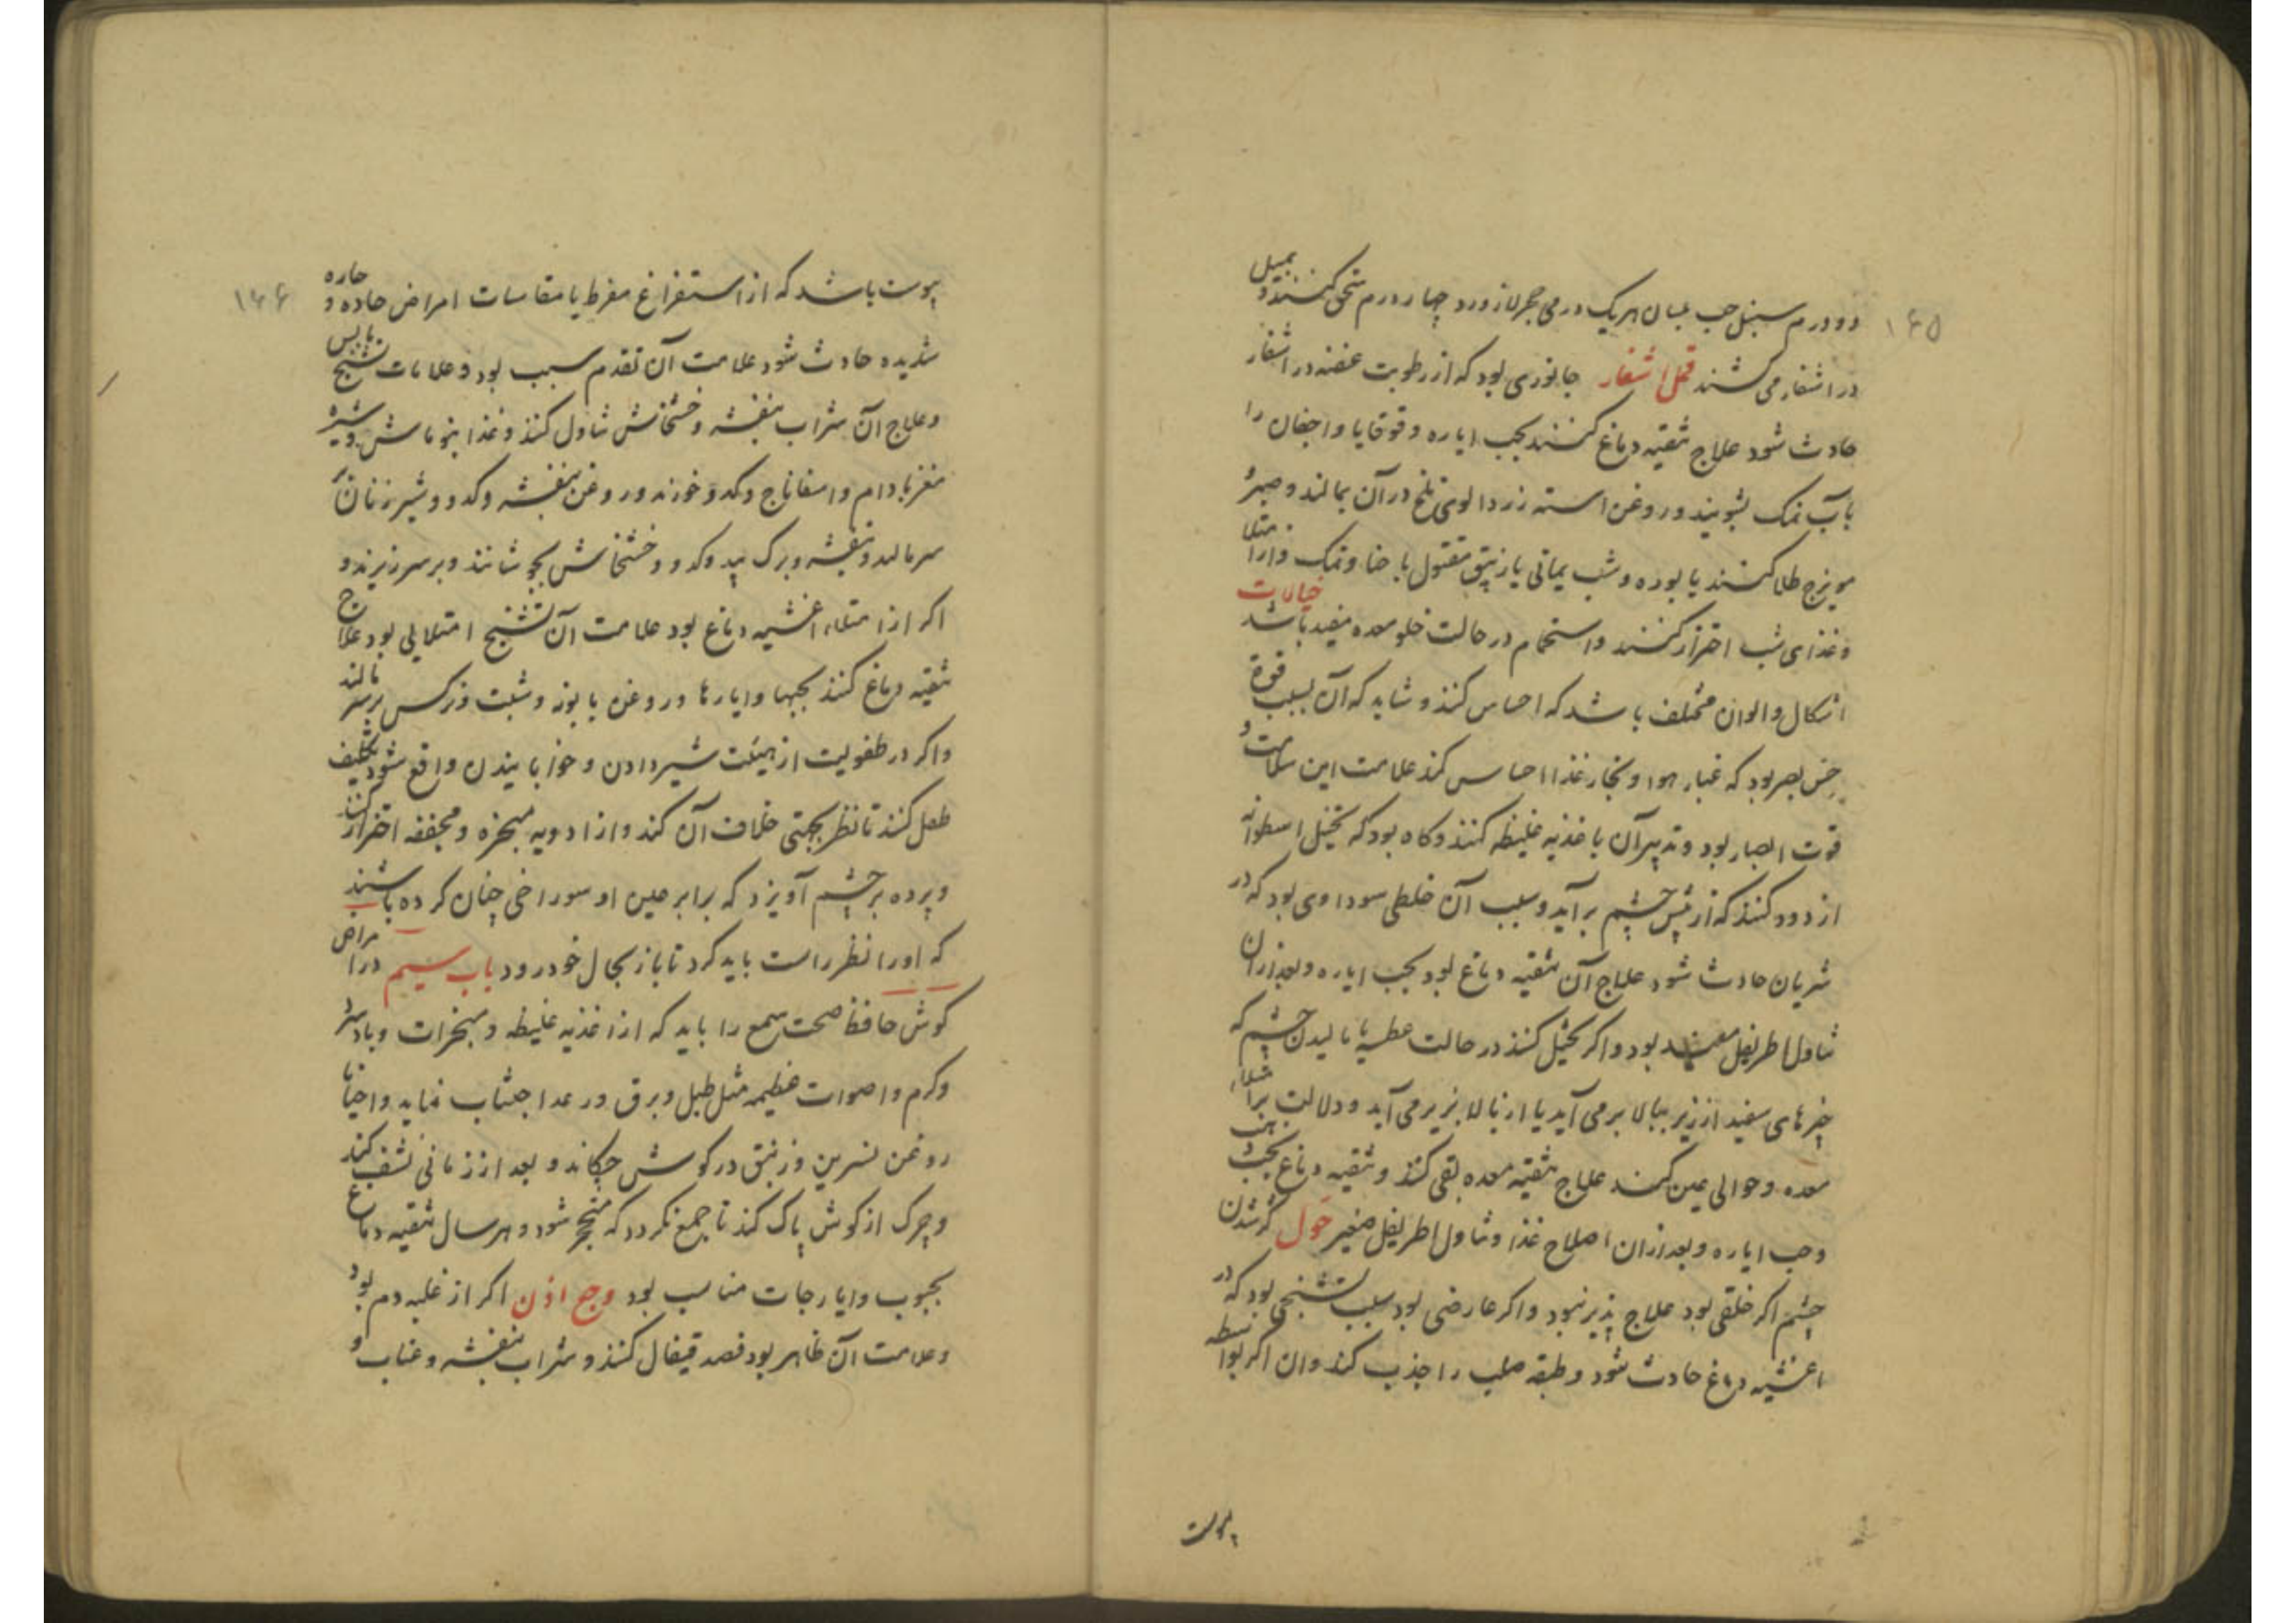 ۱۴۵
دو درم سنبل حب بلسان هریک درمی حجر لازورد چهار درم سحق کنند و بمیل
در اشفار می کشند قمل اشفار جانوری بود که از رطوبت عفنه در اشفار
حادث شود علاج تنقیه دماغ کنند بحب ایاره و قوقایا و اجفان را
باب نمک بشویند و روغن استه زردالوی تلخ در آن بمالند و صبر و
مویزج طلا کنند یا بوره و شب یمانی یا زیبق مقتول با حنا و نمک و از امتلا
و غذای شب احتراز کنند و استحمام در حالت خلو معده مفید باشد خیالات
اشکال و الوان مختلف باشد که احساس کنند و شاید که آن بسبب قوة
حس بصر بود که غبار هوا و بخار غذا احساس کند علامت این سلامت و
قوت ابصار بود و تدبیر آن باغذیه غلیظه کنند و کاه بود که تخیل اسطوانه
از دود کنند که از پیش چشم برآید و سبب آن خلطی سوداوی بود که در
شریان حادث شود علاج آن تنقیه دماغ بود بحب ایاره و بعد از آن
تناول اطریفل مفید بود و اکر تخیل کنند در حالت عطسه یا مالیدن چشم که
چیزهای سفید از زیر ببالا برمی آید یا از بالا بزیر می آید و دلالت بر امتلاء
معده و حوالی عین کند علاج تنقیه معده بقی کنند و تنقیه دماغ بحب بنفشه
و حب ایاره و بعد از آن اصلاح غذا و تناول اطریفل صغیر حول کژ شدن
چشم اکر خلقی بود علاج پذیر نبود و اکر عارضی بود بسبب تشنجی بود که در
اغشیه دماغ حادث شود و طبقه صلب را جذب کند و ان اکر بواسطه
یبوست
۱۴۶
یبوست باشد که از استفراغ مفرط یا مقاسات امراض حاده و حاره
شدیده حادث شود علامت آن تقدم سبب بود و علامات تشنج یابس
و علاج آن شراب بنفشه و خشخاش تناول کنند و غذا بنوماش و شیره
مغز بادام و اسفاناج و کدو خورند و روغن بنفشه و کدو و شیر زنان بر
سر مالند و بنفشه و برک بید و کدو و خشخاش بجوشانند و بر سر ریزند و
اکر از امتلاء اغشیه دماغ بود علامت آن تشنج امتلایی بود علاج
تنقیه دماغ کنند بحبها و ایارها و روغن بابونه و شبت و نرکس بر سر مالند
و اکر در طفولیت از هیئت شیر دادن و خوابانیدن واقع شود تکلیف
طفل کنند تا نظر بجهتی خلاف آن کند و از ادویه مبخره و مجففه احتراز کنند
و پرده بر چشم آویزد که برابر عین او سوراخی چنان کرده باشند
که اورا نظر راست باید کرد تا باز بحال خود رود باب سیم در امراض
کوش حافظ صحت سمع را باید که از اغذیه غلیظه و مبخرات و باد سرد
و کرم و اصوات عظیمه مثل طبل و برق و رعد اجتناب نماید و احیانا
روغن نسرین و زنبق در کوش چکاند و بعد از زمانی نشف کند
و چرک از کوش پاک کند تا جمع نکردد که متحجر شود و هر سال تنقیه دماغ
بحبوب و ایارجات مناسب بود وجع اذن اکر از غلبه دم بود
و علامت آن ظاهر بود فصد قیفال کنند و شراب بنفشه و عناب و